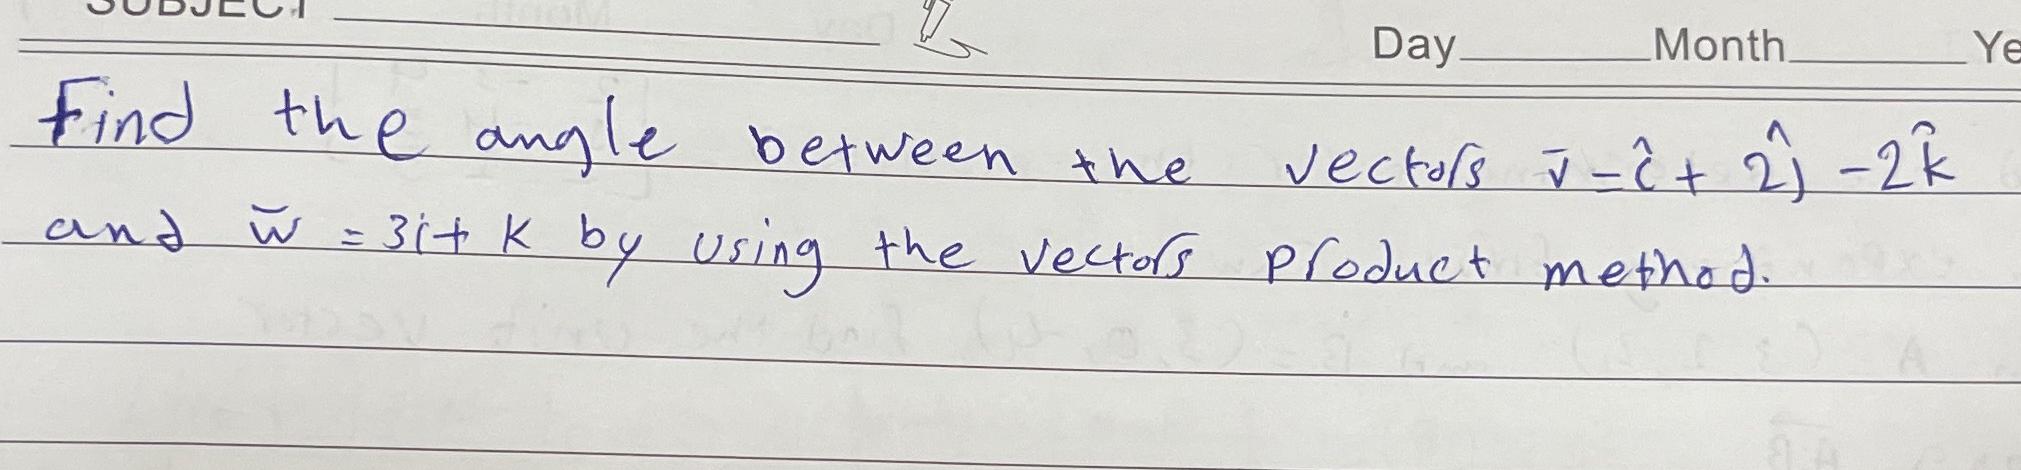 SUBJECT
Day Month Ye
Find the angle between the vectors v̄ = î + 2ĵ - 2k̂
and w̄ = 3i + k by using the vectors product method.